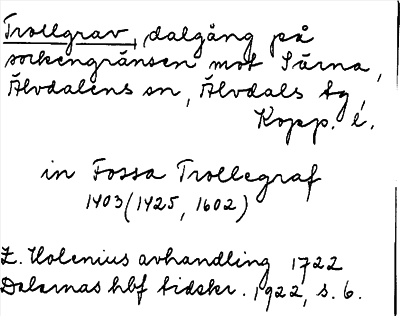 Trollgrav, dalgång på
sockengränsen mot Särna,
Älvdalens sn, Älvdals tg,
Kopp. l.
in Fossa Trollegraf
1403 (1425, 1602)
E. Holenius avhandling 1722
Dalarnas hbf tidskr. 1922, s. 6.